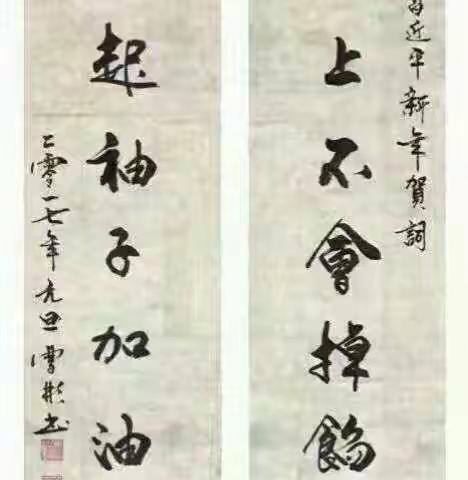 習近平新年賀詞
上不會掉餡
起袖子加油
二零一七年元旦書